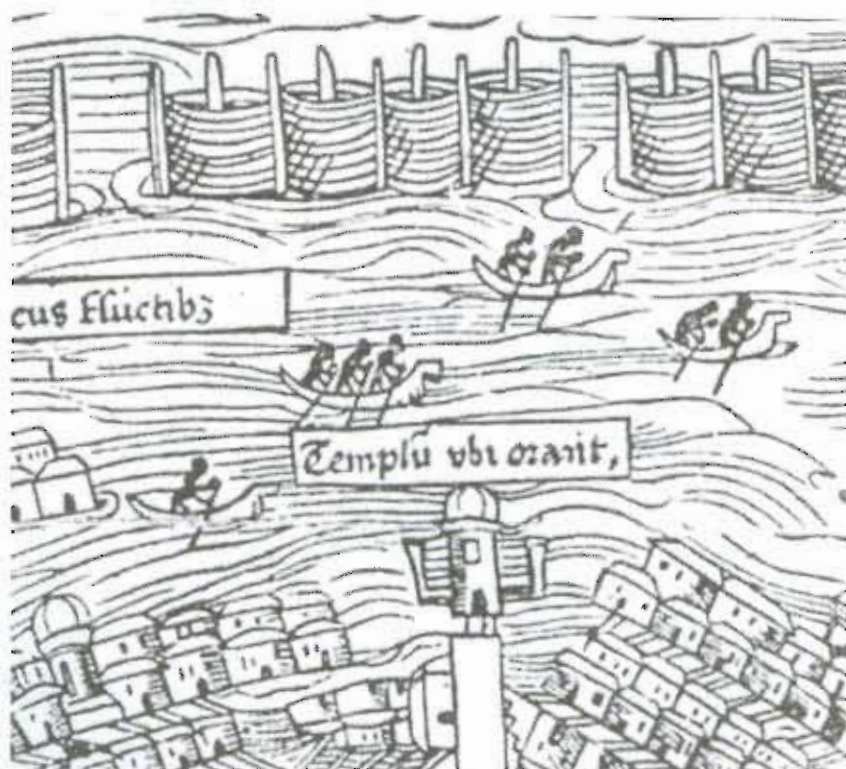 cus fluctibꝫ
Templū vbi orant,